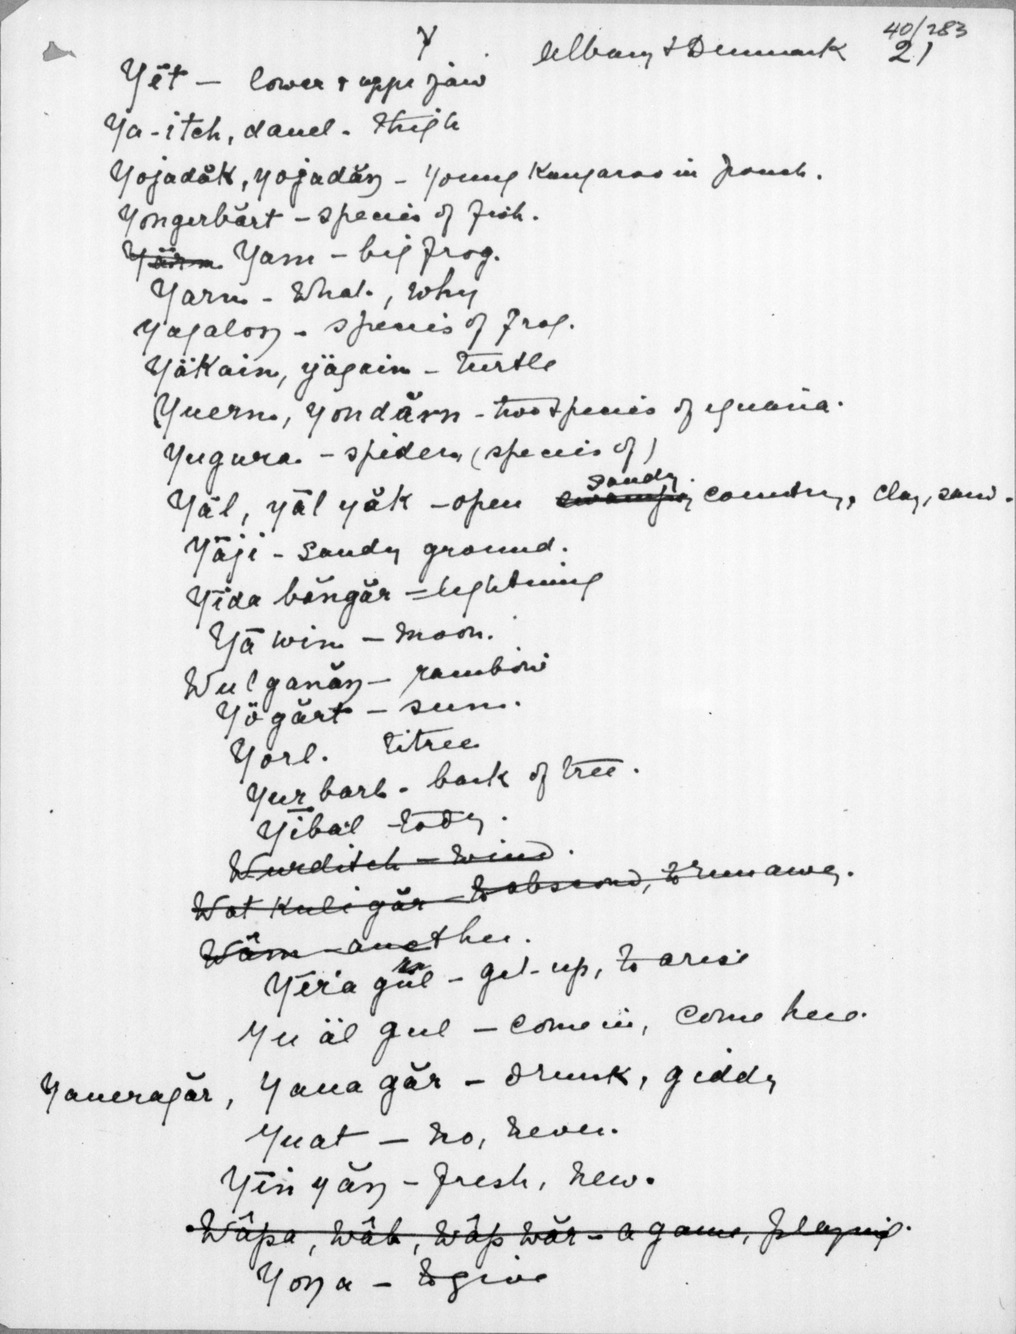 40/283
Y Albany & Denmark 21
Yēt — lower & upper jaw
Ya-itch, dauel - thigh
Yojadăk, yojadăŋ - young kangaroo in pouch.
Yongerbărt - species of fish.
Yärn Yam - big frog.
Yarn - What, why
Yagaloŋ - species of frog.
Yäkain, yägain - turtle
Yuern, Yondărn - two species of iguana.
Yugura - spider (species of)
Yāl, yāl yăk - open swampy sandy country, clay, sand.
Yāji - sandy ground.
Yīda băngăr - lightning
Yā win - moon.
Wulganăŋ - rainbow
Yögărt - sun.
Yorl. titree
Yur barl. bark of tree.
Yībal - today.
Wurditch - wind.
Wat kuligăr - to abscond, to run away.
Wâm - another.
Yīra gŭl - get up, to arise
Yu äl gul - come in, come here.
Yaueragăr, Yaua găr - drunk, giddy
Yuat - no, never.
Yīn yăŋ - fresh, new.
Wâpa, Wâb, Wâp wăr - a game, playing.
Yoŋa - to give